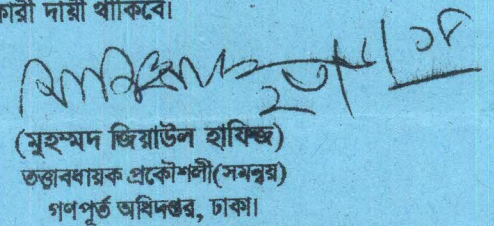 কারী দায়ী থাকিবে।
(মুহম্মদ জিয়াউল হাফিজ)
তত্ত্বাবধায়ক প্রকৌশলী(সমন্বয়)
গণপূর্ত অধিদপ্তর, ঢাকা।